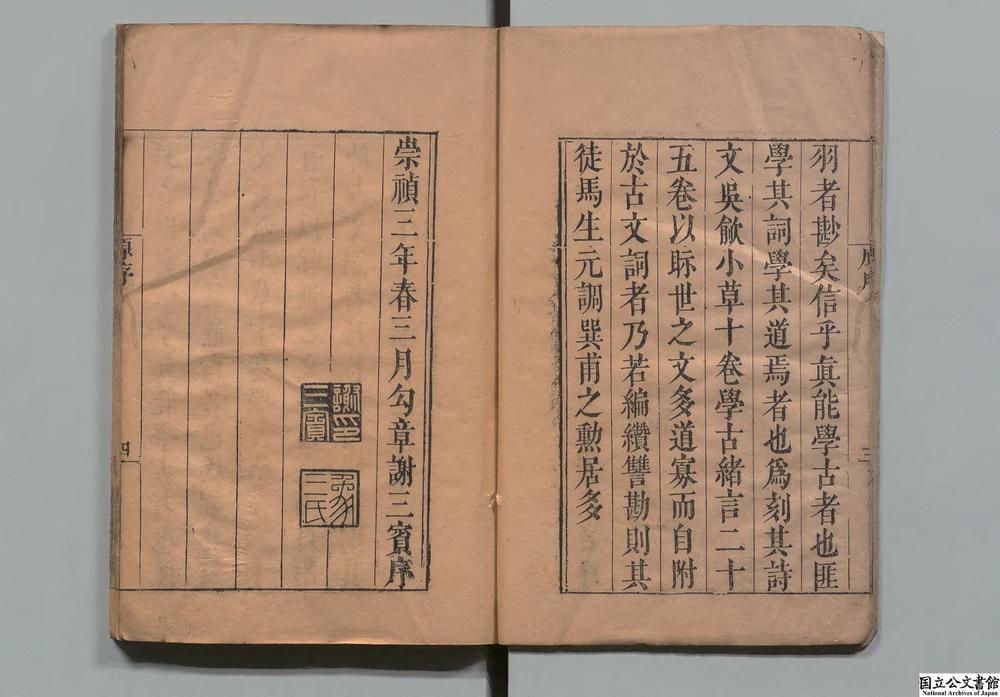 羽者尠矣信乎眞能學古者也匪
學其詞學其道焉者也爲刻其詩
文吳歈小草十卷學古緒言二十
五卷以眎世之文多道寡而自附
於古文詞者乃若編纘讐勘則其
徒馬生元調巽甫之勲居多
三
崇禎三年春三月勾章謝三賓序
謝三賓印
原序
四
国立公文書館
National Archives of Japan